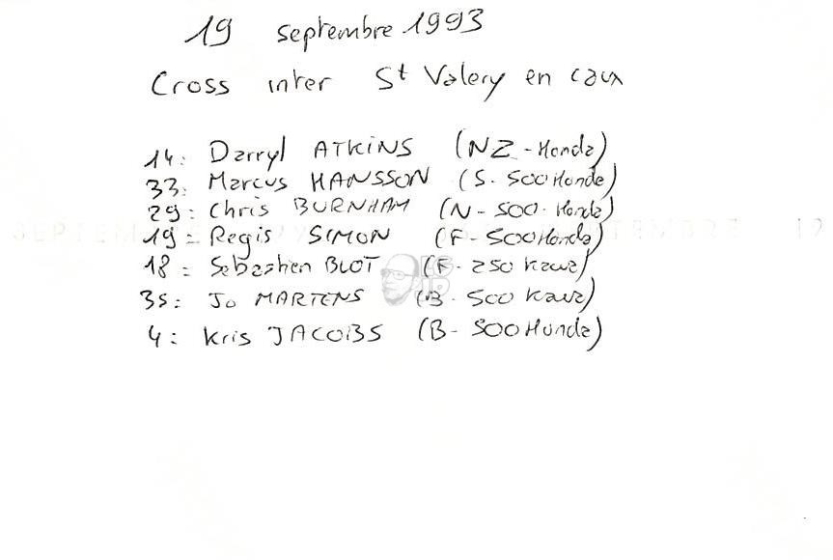 19 septembre 1993
Cross inter St Valery en caux
14: Darryl ATKINS (NZ - Honda)
33: Marcus HANSSON (S. 500 Honda)
29: Chris BURNHAM (N - 500 - Honda)
19 = Regis SIMON (F - 500 Honda)
18 = Sebastien BLOT (F. 250 Kawa)
35: Jo MARTENS (B. 500 Kawa)
4: Kris JACOBS (B - 500 Honda)